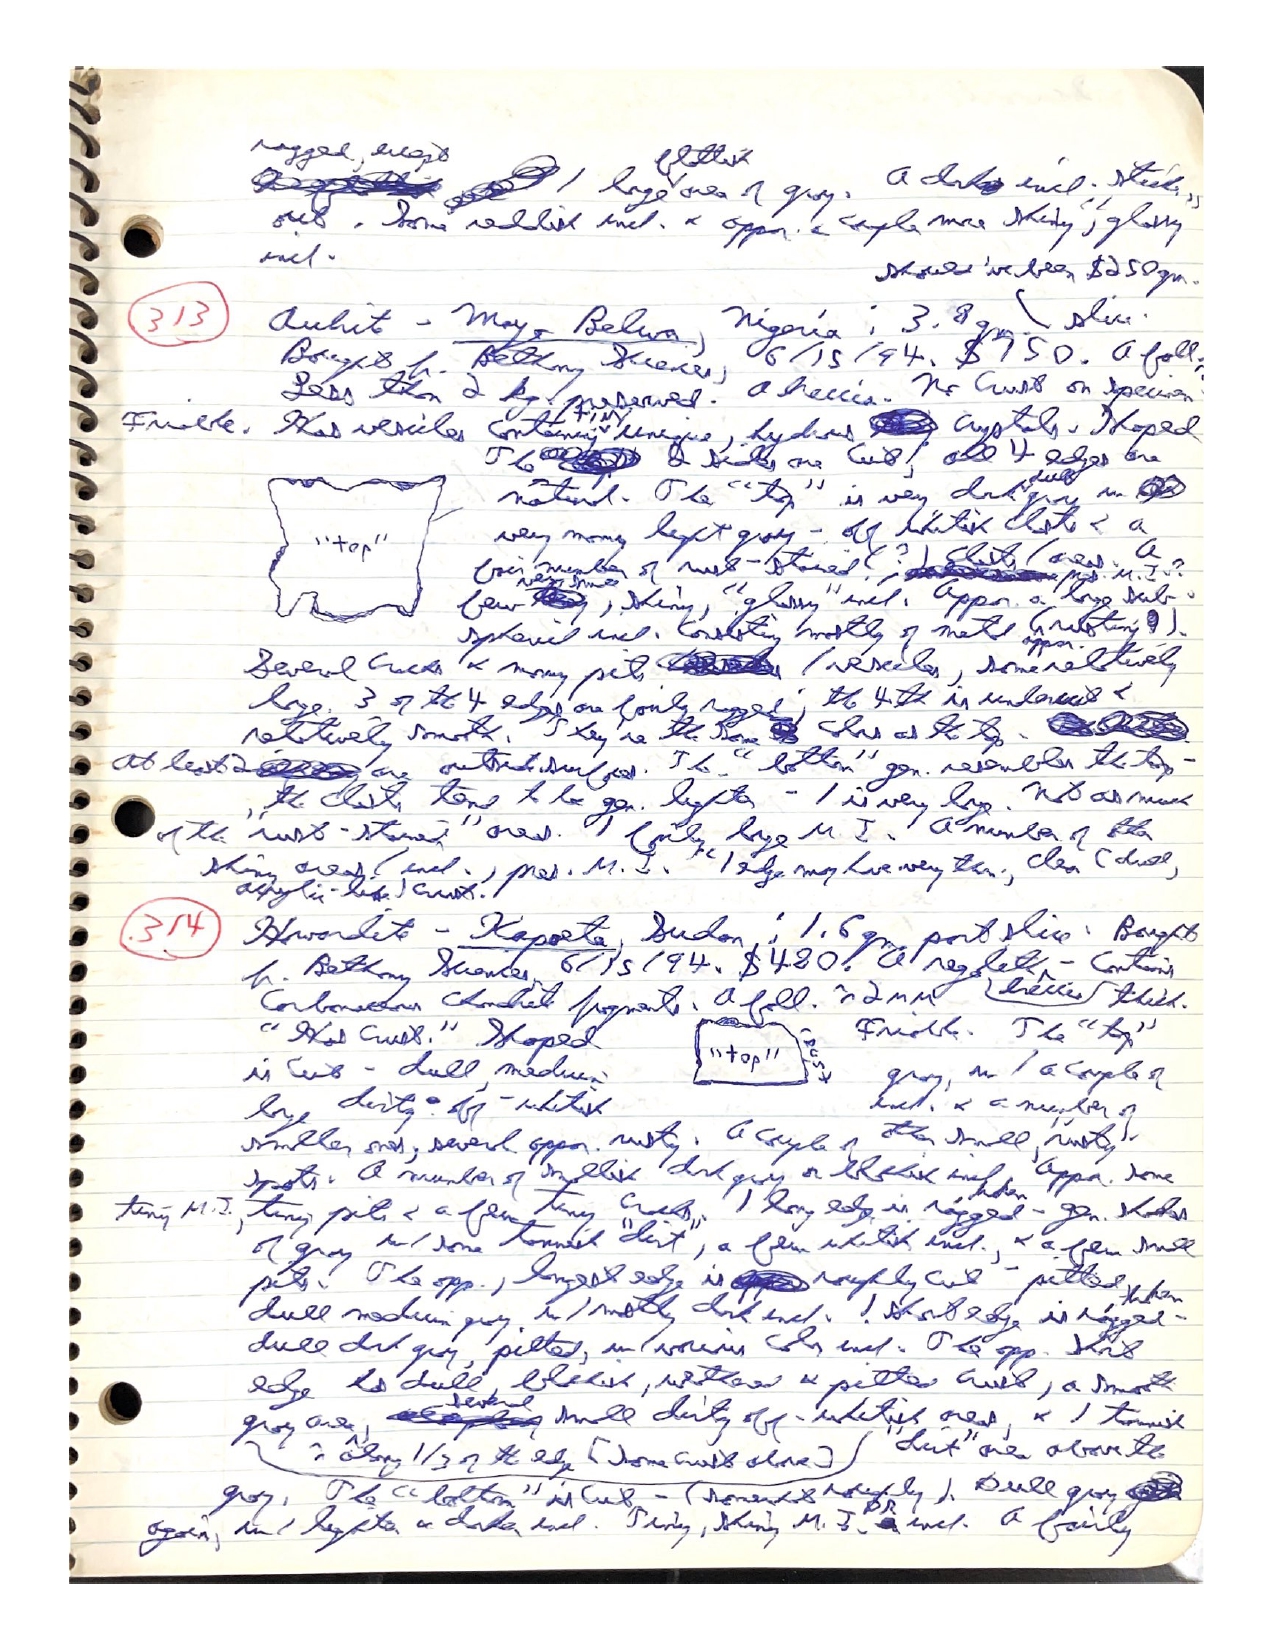 ragged, except
1 large flattish area of gray. A dark incl. sticks
out. Some reddish incl. & appar. a couple more shiny, "glassy"
incl.
should've been $250/gm.
313 Aubrite - Mayo Belwa, Nigeria; 3.8 gm. slice.
Bought fr. Bethany Sciences, 6/15/94. $750. A fall.
Less than 2 kg. preserved. A breccia. No crust on specimen.
Friable. Has vesicles containing (tiny) unique, hydrous crystals. Shaped
The 2 sides are cut; all 4 edges are
natural. The "top" is very dark dull gray w/
very many light gray - off whitish clasts & a
fair number of rust-stained (?) clasts/areas. A
few very small, shiny, "glassy" incl. Appar. a large sub-
spherical incl. consisting mostly of metal (rusting?).
"top"
Several cracks & many pits/vesicles, some relatively
large. 3 of the 4 edges are fairly ragged; the 4th is undercut &
relatively smooth. They're the same colors as the top.
At least 2 are outside surfaces. The "bottom" gen. resembles the top -
the clasts tend to be gen. lighter - 1 is very large. Not as much
of the "rust-stained" areas. 1 fairly large M.I. A number of other
shiny areas/incl., pres. M.I. 1 edge may have very thin, clear (dull,
acrylic-like) crust.
314 Howardite - Kapoeta, Sudan; 1.6 gm. part slice. Bought
fr. Bethany Sciences, 6/15/94. $480. A regolith breccia - contains
carbonaceous chondrite fragments. A fall. ≈2mm thick.
"Has crust." Shaped
"top"
crust
Friable. The "top"
is cut - dull, medium
gray, w/ a couple of
large dirty off-whitish
incl. & a number of
smaller ones, several appar. rusty. A couple of other small, "rusty"
spots. A number of smallish dark gray or blackish incl. Appar. some
tiny M.I., tiny pits & a few tiny cracks. 1 long edge is ragged - gen. shades
of gray w/ some tannish "dirt", a few whitish incl., & a few small
pits. The opp., longest edge is roughly cut - pitted,
dull medium gray w/ mostly dark incl. 1 short edge is ragged -
dull dark gray, pitted, w/ various color incl. The opp. short
edge has dull, blackish, weathered & pitted crust, a smooth
gray area, several small dirty off-whitish areas, & 1 tannish
≈ along 1/3 of the edge [some crust above]
"dirt" area above the
gray. The "bottom" is cut - (somewhat roughly). Dull gray
again, w/ lighter & darker incl. Tiny, shiny M.I. or incl. A fairly